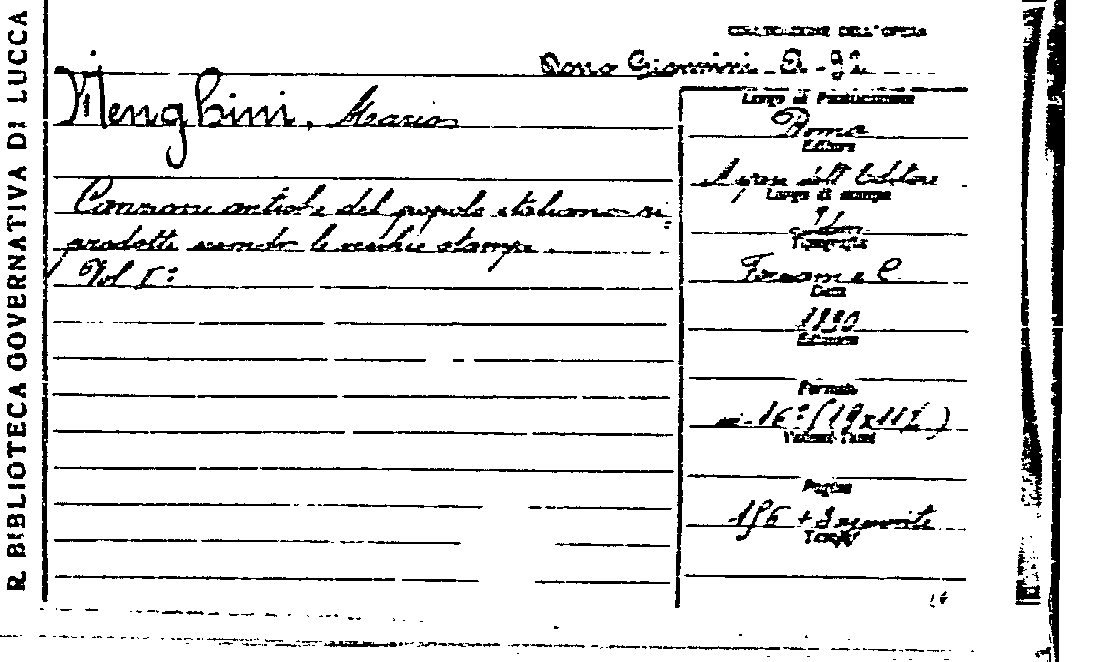 R. BIBLIOTECA GOVERNATIVA DI LUCCA
COLLOCAZIONE DELL'OPERA
Dono Giannini. D - 92
Menghini, Mario
Canzoni antiche del popolo italiano ri-
prodotte secondo le vecchie stampe.
Vol I:
Luogo di Pubblicazione
Roma
Editore
A spese dell'Editore
Luogo di stampa
Idem
Tipografia
Forzani e C
Data
1890
Edizione
Formato
in-16º (19x11½)
Volumi-Tomi
Pagine
Tavole